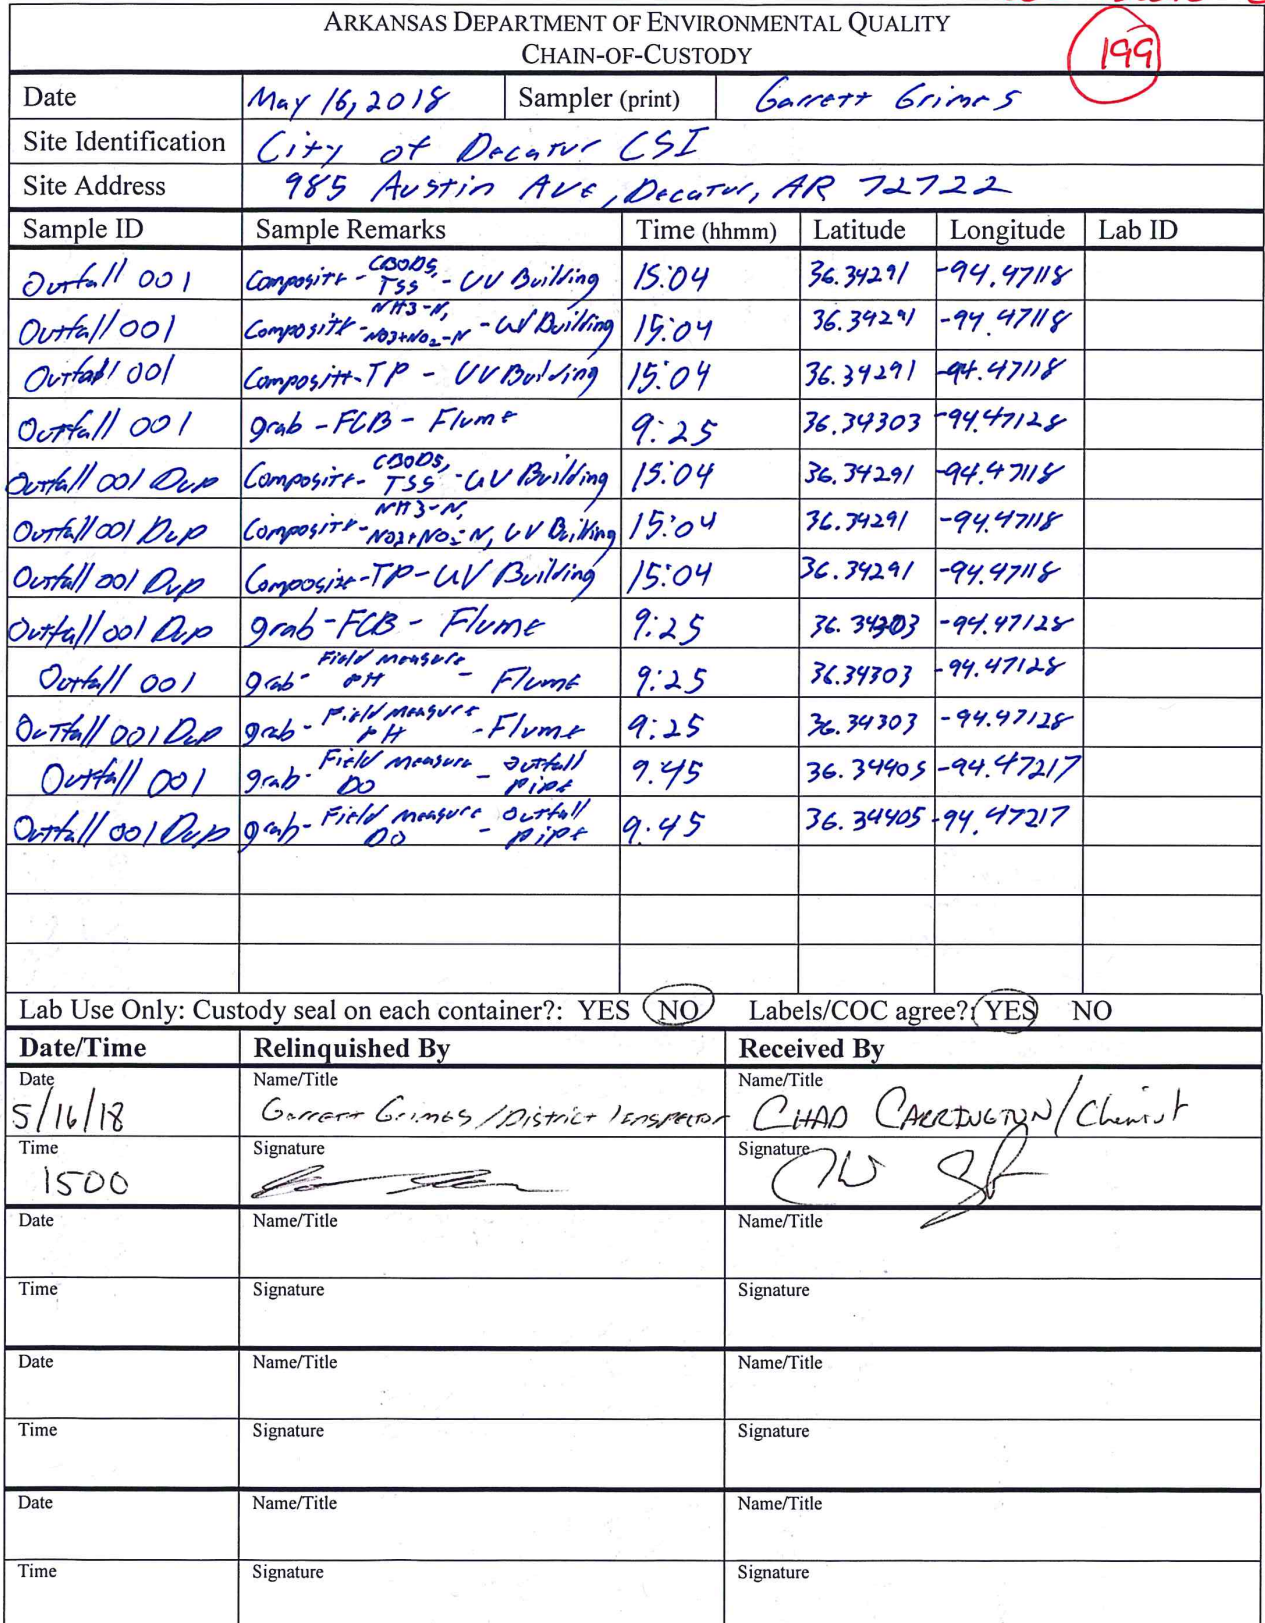 ARKANSAS DEPARTMENT OF ENVIRONMENTAL QUALITY
CHAIN-OF-CUSTODY
199
Date May 16, 2018 Sampler (print) Garrett Grimes
Site Identification City of Decatur CSI
Site Address 985 Austin Ave, Decatur, AR 72722
Sample ID Sample Remarks Time (hhmm) Latitude Longitude Lab ID
Outfall 001 Composite - CBOD5, TSS - UV Building 15:04 36.34291 -94.47118
Outfall 001 Composite - NH3-N, NO3+NO2-N - UV Building 15:04 36.34291 -94.47118
Outfall 001 Composite - TP - UV Building 15:04 36.34291 -94.47118
Outfall 001 grab - FCB - Flume 9:25 36.34303 -94.47128
Outfall 001 Dup Composite - CBOD5, TSS - UV Building 15:04 36.34291 -94.47118
Outfall 001 Dup Composite - NH3-N, NO3+NO2-N, UV Building 15:04 36.34291 -94.47118
Outfall 001 Dup Composite - TP - UV Building 15:04 36.34291 -94.47118
Outfall 001 Dup grab - FCB - Flume 9:25 36.34303 -94.47128
Outfall 001 grab - Field Measure pH - Flume 9:25 36.34303 -94.47128
Outfall 001 Dup grab - Field Measure pH - Flume 9:25 36.34303 -94.47128
Outfall 001 grab - Field Measure DO - Outfall Pipe 9:45 36.34405 -94.47217
Outfall 001 Dup grab - Field Measure DO - Outfall Pipe 9:45 36.34405 -94.47217
Lab Use Only: Custody seal on each container?: YES NO Labels/COC agree?: YES NO
Date/Time Relinquished By Received By
Date Name/Title Name/Title
5/16/18 Garrett Grimes / District Inspector CHAD CARRINGTON/Chemist
Time Signature Signature
1500
Date Name/Title Name/Title
Time Signature Signature
Date Name/Title Name/Title
Time Signature Signature
Date Name/Title Name/Title
Time Signature Signature